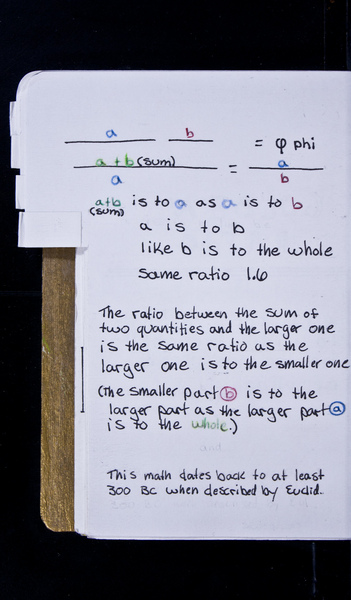 a b = φ phi
a + b (sum) = a
a b
a+b is to a as a is to b
(sum)
a is to b
like b is to the whole
same ratio 1.6
The ratio between the sum of
two quantities and the larger one
is the same ratio as the
larger one is to the smaller one
(The smaller part b is to the
larger part as the larger part a
is to the whole.)
and
This math dates back to at least
300 BC when described by Euclid.